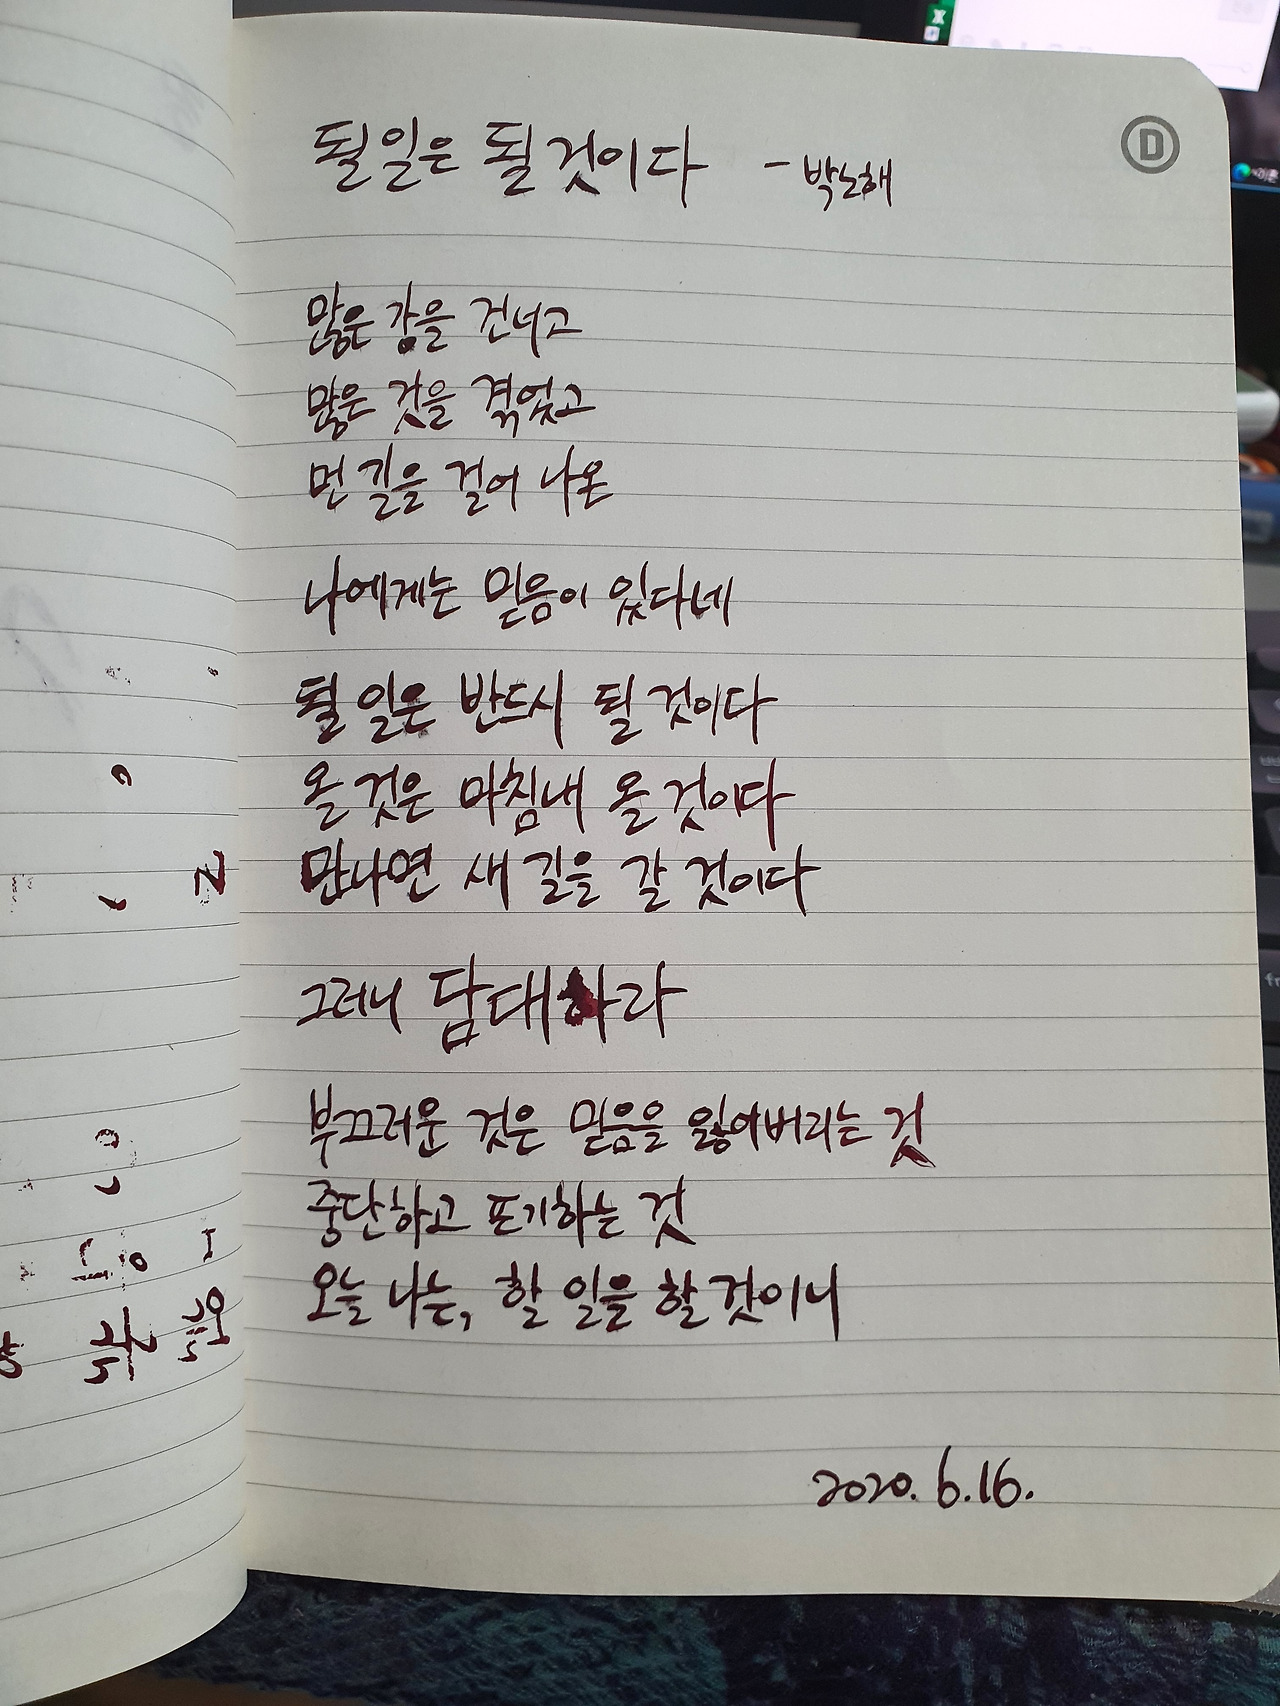 될 일은 될 것이다 - 박노해
D
많은 강을 건너고
많은 것을 겪었고
먼 길을 걸어 나온
나에게는 믿음이 있다네
될 일은 반드시 될 것이다
올 것은 마침내 올 것이다
만나면 새 길을 갈 것이다
그러니 담대하라
부끄러운 것은 믿음을 잃어버리는 것
중단하고 포기하는 것
오늘 나는, 할 일을 할 것이니
2020. 6. 16.